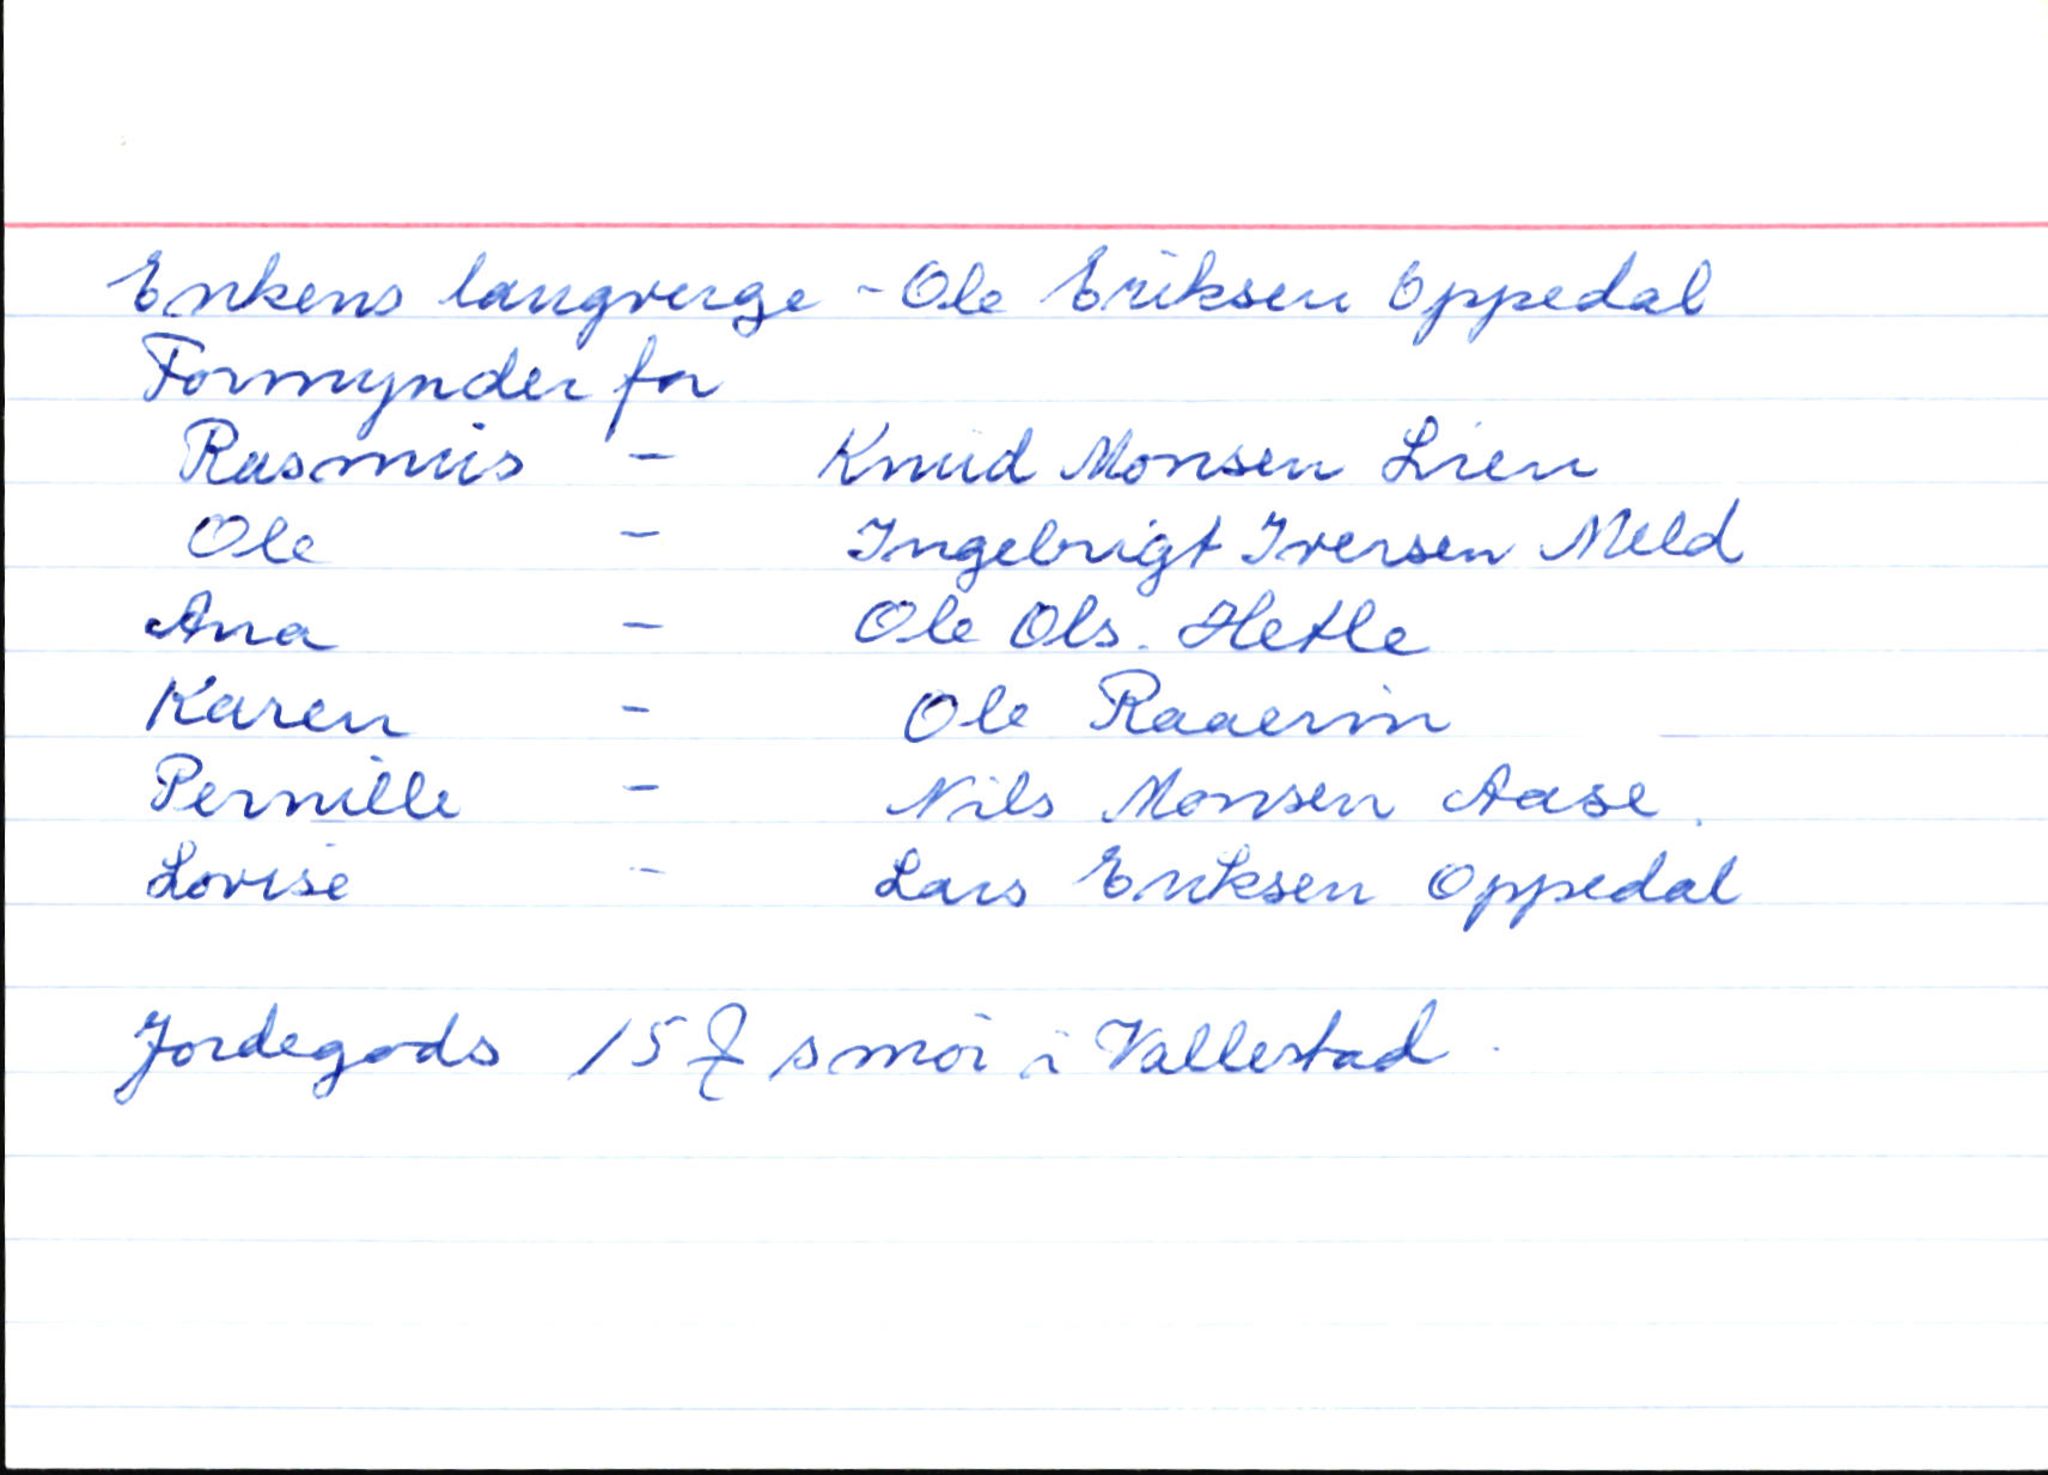 Enkens laugverge - Ole Eriksen Oppedal
Formynder for
Rasmus - Knud Monsen Lien
Ole - Ingebrigt Iversen Meld
Ana - Ole Ols. Hetle
Karen - Ole Raaerim
Pernille - Nils Monsen Aase.
Lovise - Lars Eriksen Oppedal
Jordegods 15 ℔ smör i Vallestad.